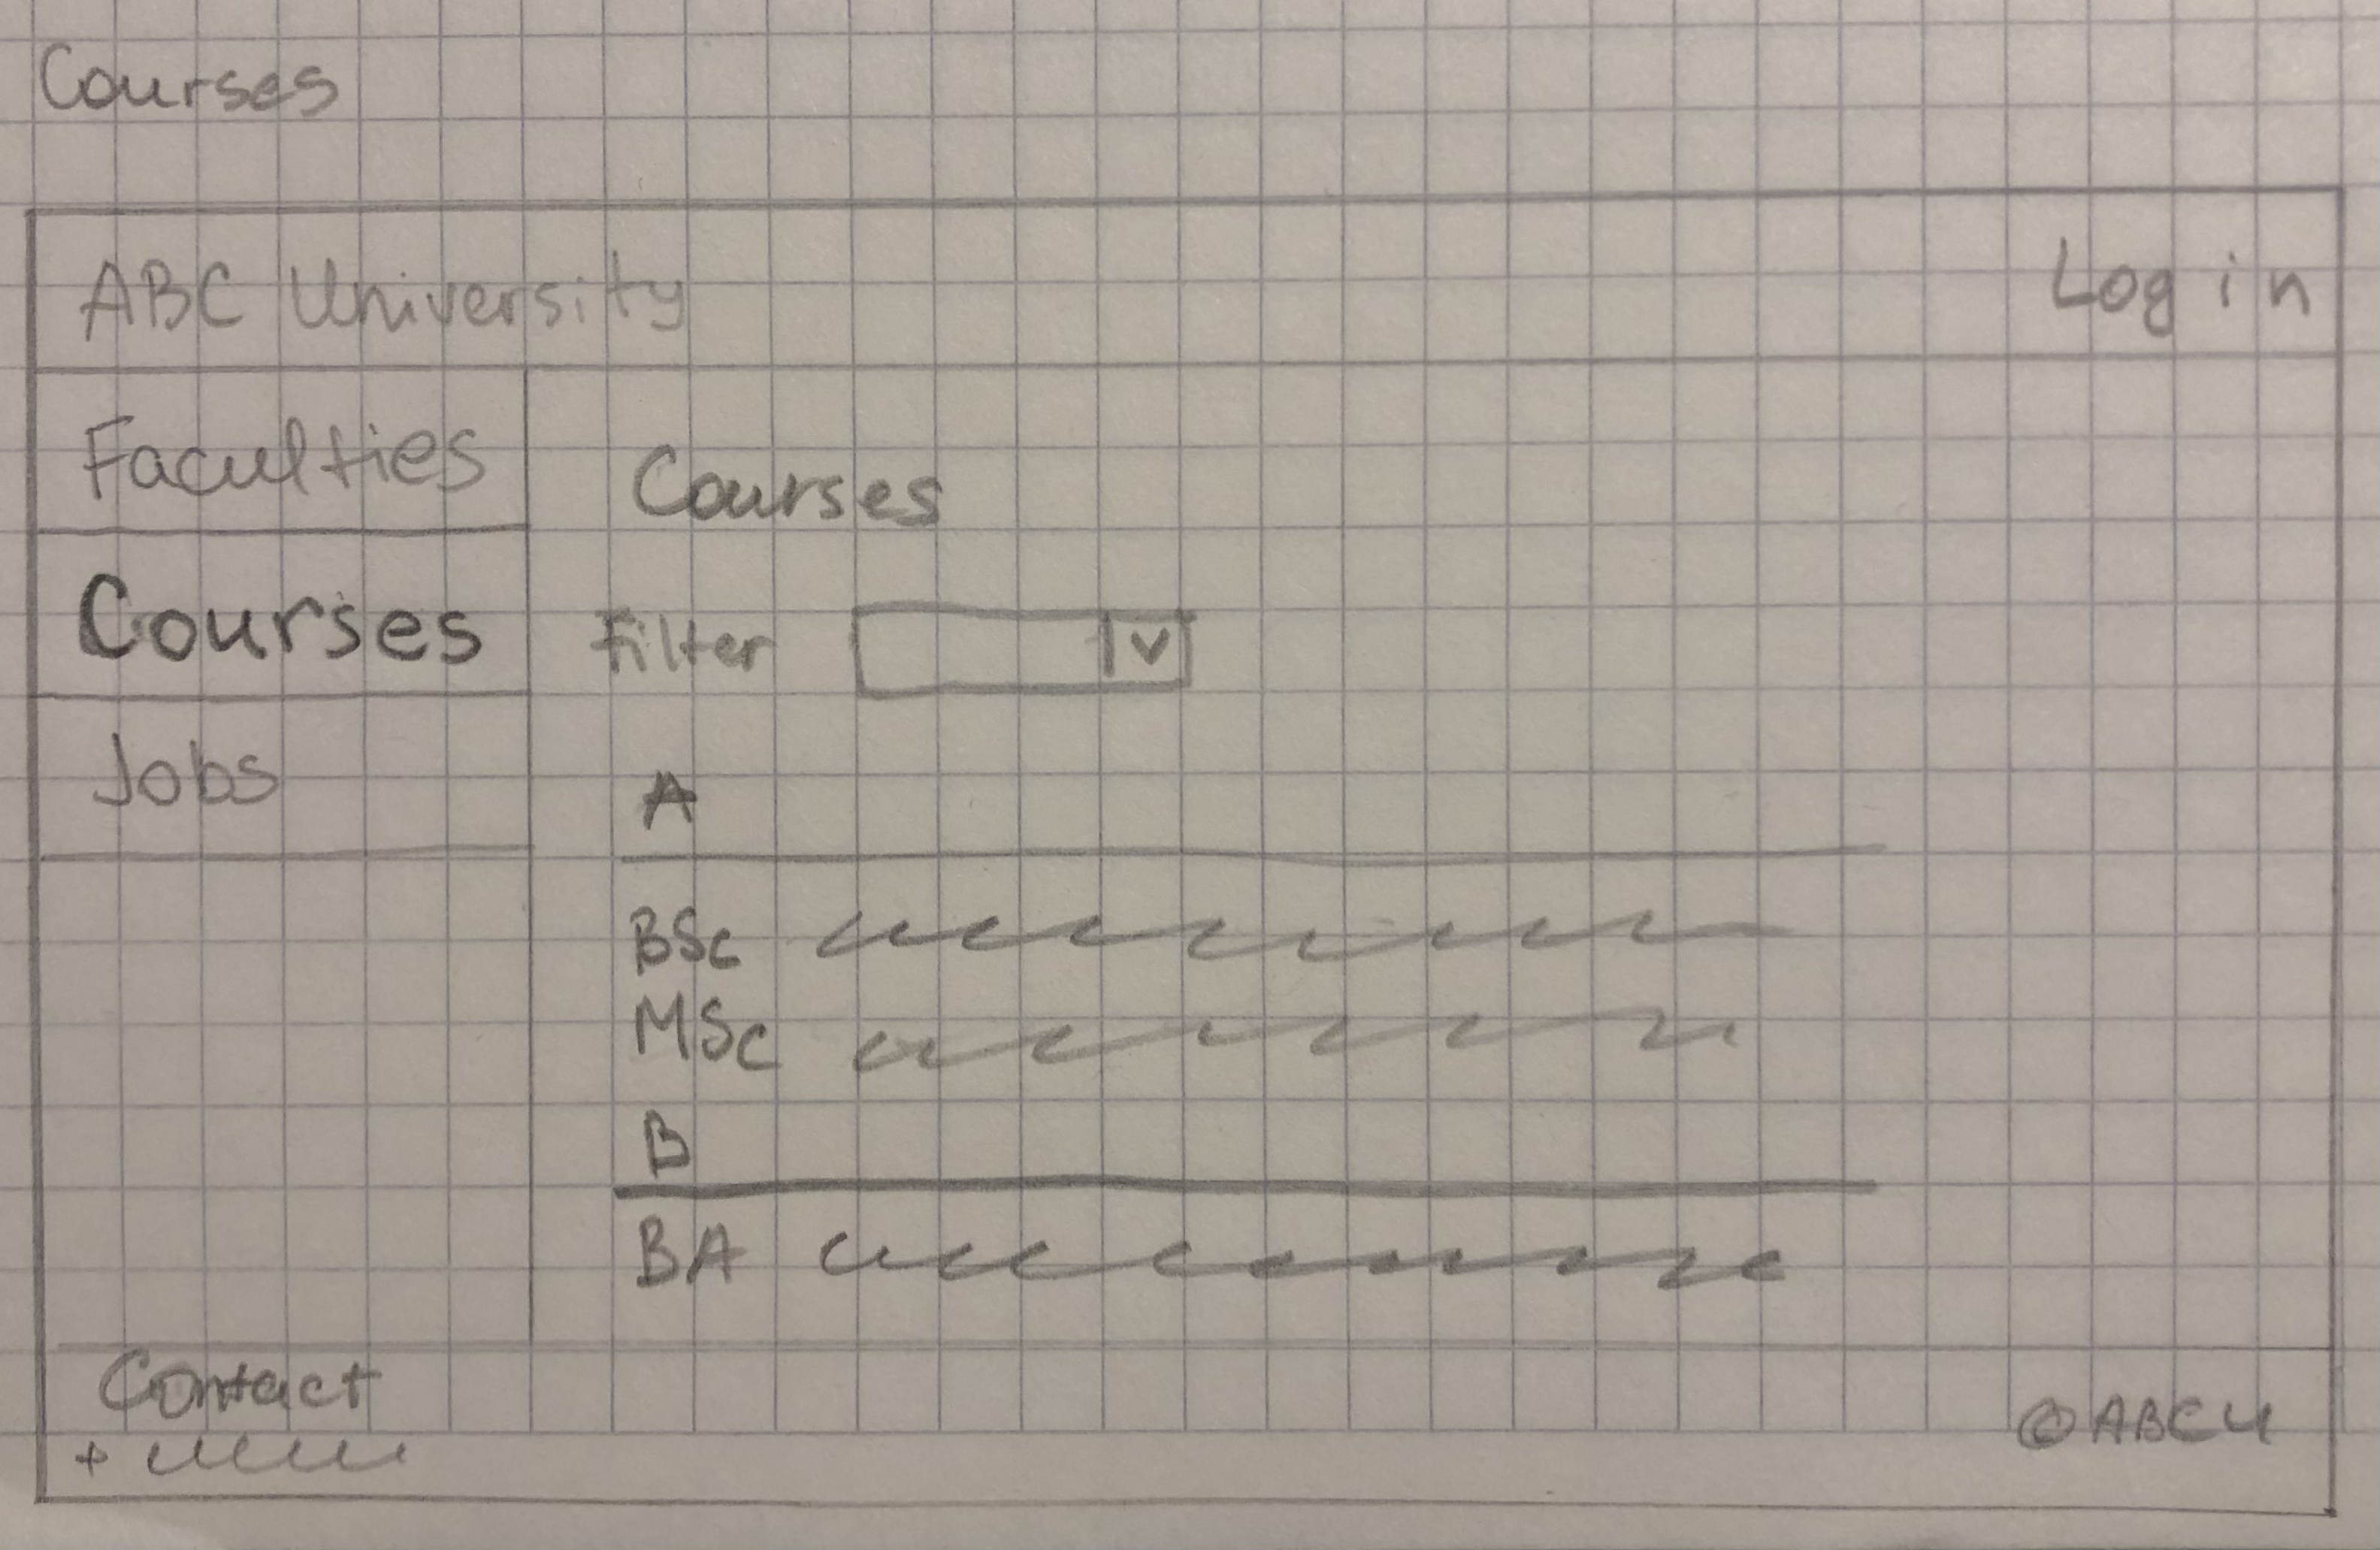 Courses
ABC University
Log in
Faculties
Courses
Jobs
Courses
Filter
A
BSc
MSc
B
BA
Contact
+
©ABCU